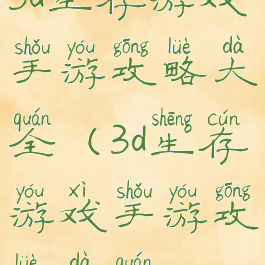 3d生存游戏
shǒu yóu gōng lüè dà
手游攻略大
quán shēng cún
全(3d生存
yóu xì shǒu yóu gōng
游戏手游攻
lüè dà quán